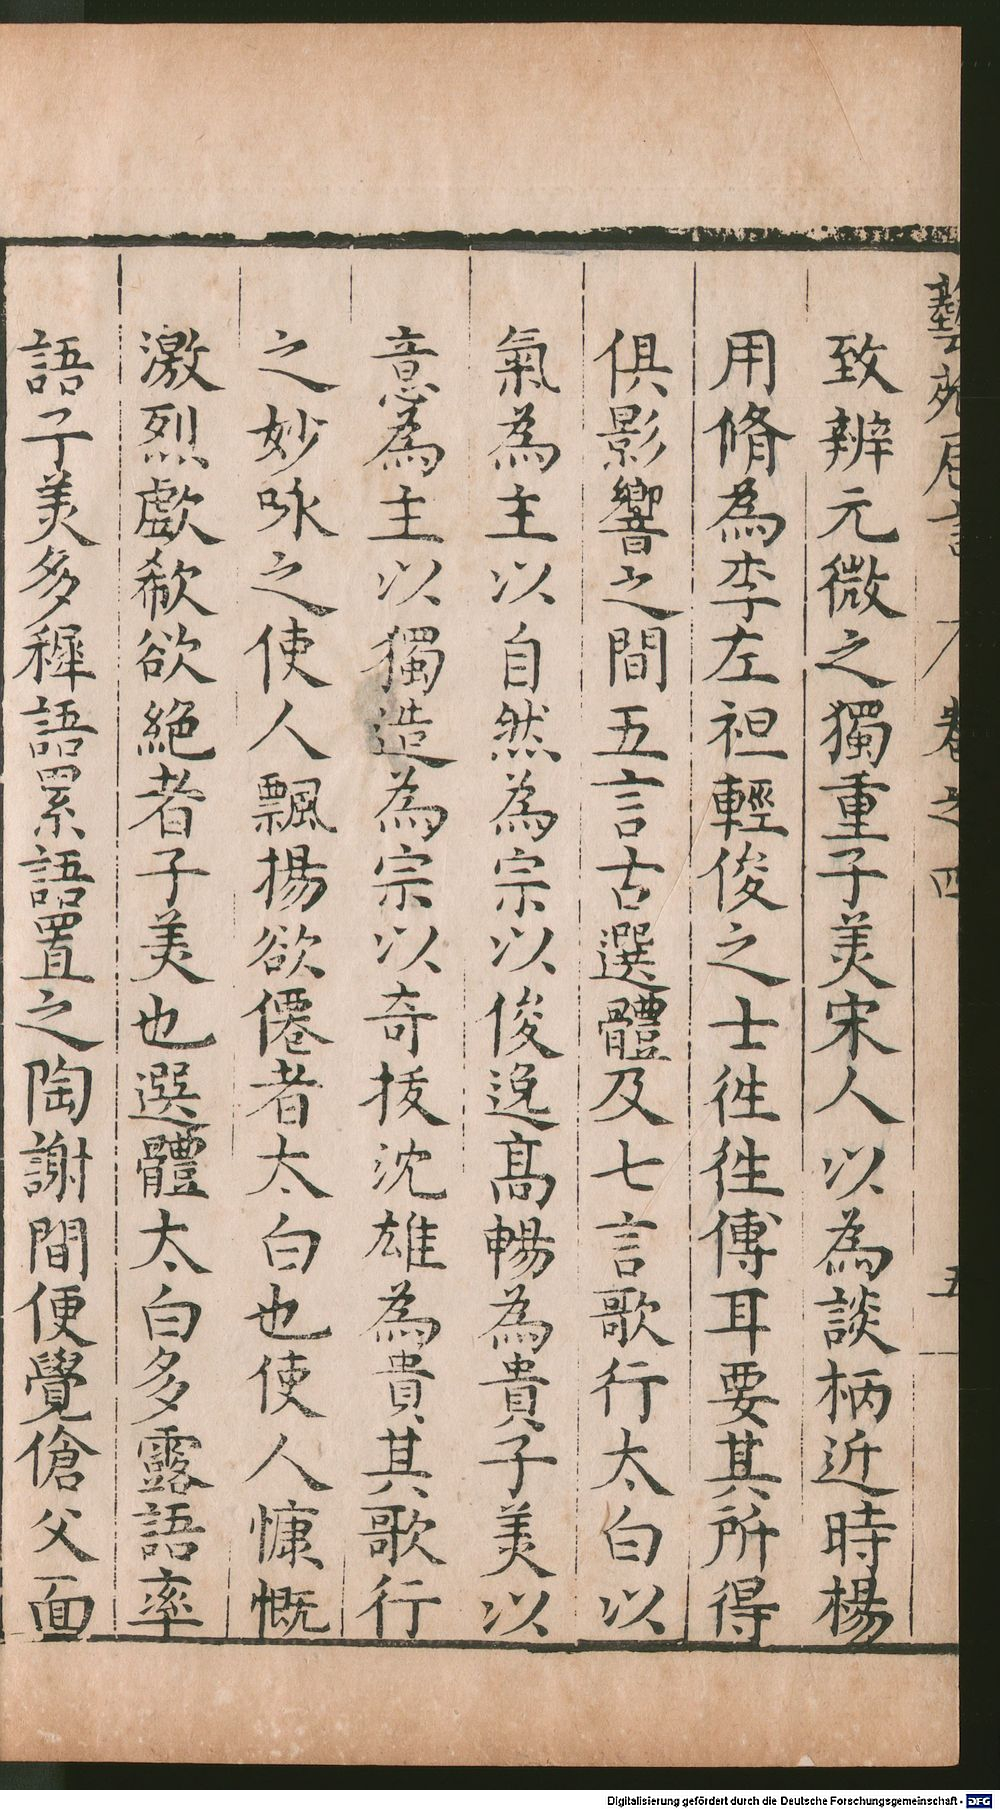 藝苑卮言 卷之四 五
致辨元微之獨重子美宋人以為談柄近時楊
用脩為李左袒輕俊之士徃徃傅耳要其所得
俱影響之間五言古選體及七言歌行太白以
氣為主以自然為宗以俊逸高暢為貴子美以
意為主以獨造為宗以奇拔沈雄為貴其歌行
之妙咏之使人飄揚欲僊者太白也使人慷慨
激烈歔欷欲絕者子美也選體太白多露語率
語子美多穉語累語置之陶謝間便覺傖父面
Digitalisierung gefördert durch die Deutsche Forschungsgemeinschaft - DFG